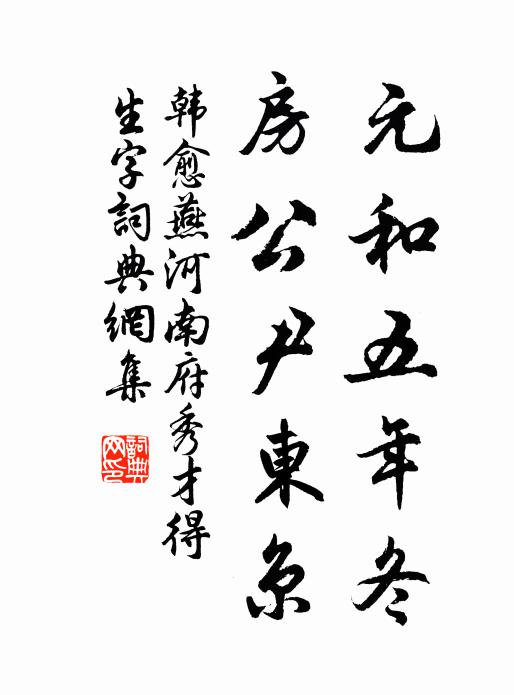 元和五年冬
房公尹東京
韩愈燕河南府秀才得
生字詞典網集
詞典网印